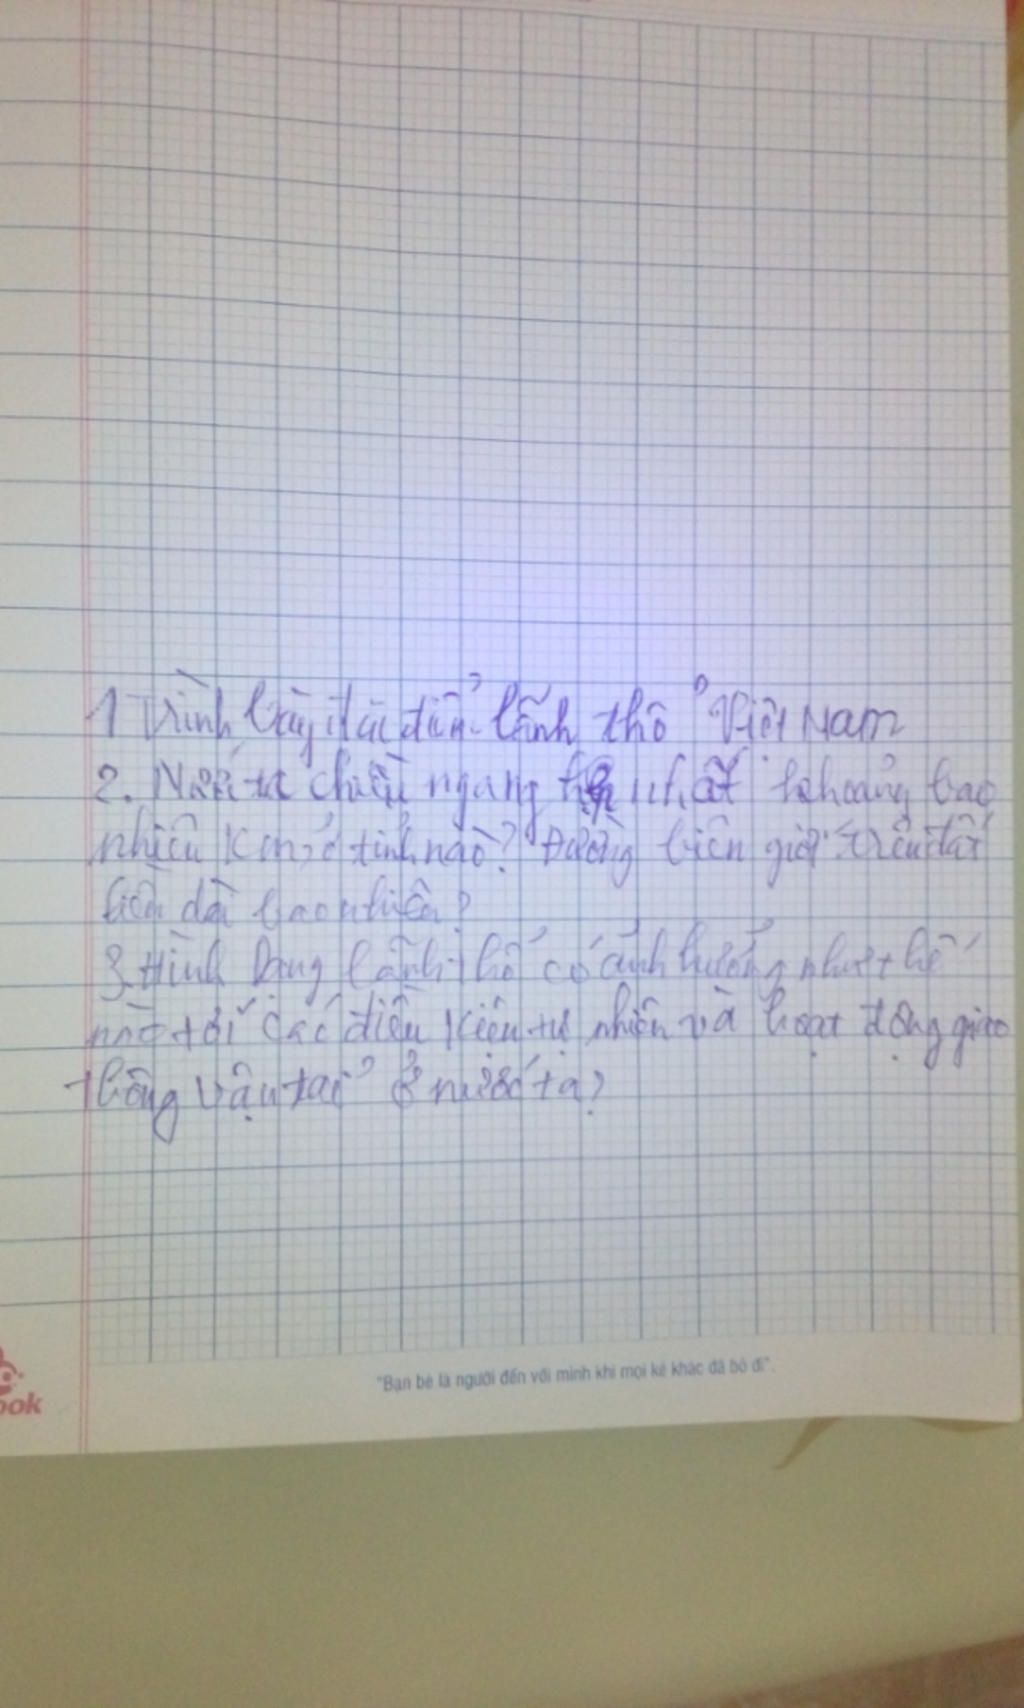 1 Trình bày đặc điểm lãnh thổ Việt Nam
2. Nước ta chiều ngang hẹp nhất khoảng bao
nhiêu Km, ở tỉnh nào? Đường biên giới trên đất
liền dài bao nhiêu?
3. Hình Dạng lãnh thổ có ảnh hưởng như thế
nào tới các điều kiện tự nhiên và hoạt động giao
thông vận tải ở nước ta?
"Bạn bè là người đến với mình khi mọi kẻ khác đã bỏ đi".
ook